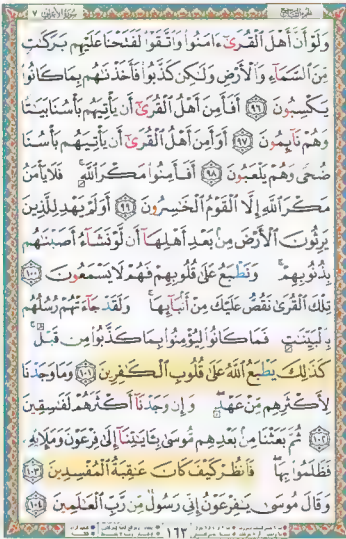 سورة الأعراف ٧
وَلَوْ أَنَّ أَهْلَ الْقُرَىٰٓ ءَامَنُوا۟ وَاتَّقَوْا۟ لَفَتَحْنَا عَلَيْهِم بَرَكَٰتٍ
مِّنَ السَّمَآءِ وَالْأَرْضِ وَلَٰكِن كَذَّبُوا۟ فَأَخَذْنَٰهُم بِمَا كَانُوا۟
يَكْسِبُونَ ٩٦ أَفَأَمِنَ أَهْلُ الْقُرَىٰٓ أَن يَأْتِيَهُم بَأْسُنَا بَيَٰتًا
وَهُمْ نَآئِمُونَ ٩٧ أَوَأَمِنَ أَهْلُ الْقُرَىٰٓ أَن يَأْتِيَهُم بَأْسُنَا
ضُحًى وَهُمْ يَلْعَبُونَ ٩٨ أَفَأَمِنُوا۟ مَكْرَ اللَّهِ ۚ فَلَا يَأْمَنُ
مَكْرَ اللَّهِ إِلَّا الْقَوْمُ الْخَٰسِرُونَ ٩٩ أَوَلَمْ يَهْدِ لِلَّذِينَ
يَرِثُونَ الْأَرْضَ مِنۢ بَعْدِ أَهْلِهَآ أَن لَّوْ نَشَآءُ أَصَبْنَٰهُم
بِذُنُوبِهِمْ ۚ وَنَطْبَعُ عَلَىٰ قُلُوبِهِمْ فَهُمْ لَا يَسْمَعُونَ ١٠٠
تِلْكَ الْقُرَىٰ نَقُصُّ عَلَيْكَ مِنْ أَنۢبَآئِهَا ۚ وَلَقَدْ جَآءَتْهُمْ رُسُلُهُم
بِالْبَيِّنَٰتِ فَمَا كَانُوا۟ لِيُؤْمِنُوا۟ بِمَا كَذَّبُوا۟ مِن قَبْلُ ۚ
كَذَٰلِكَ يَطْبَعُ اللَّهُ عَلَىٰ قُلُوبِ الْكَٰفِرِينَ ١٠١ وَمَا وَجَدْنَا
لِأَكْثَرِهِم مِّنْ عَهْدٍ ۖ وَإِن وَجَدْنَآ أَكْثَرَهُمْ لَفَٰسِقِينَ
١٠٢ ثُمَّ بَعَثْنَا مِنۢ بَعْدِهِم مُّوسَىٰ بِـَٔايَٰتِنَآ إِلَىٰ فِرْعَوْنَ وَمَلَإِي۟هِ
فَظَلَمُوا۟ بِهَا ۖ فَانظُرْ كَيْفَ كَانَ عَٰقِبَةُ الْمُفْسِدِينَ ١٠٣
وَقَالَ مُوسَىٰ يَٰفِرْعَوْنُ إِنِّى رَسُولٌ مِّن رَّبِّ الْعَٰلَمِينَ ١٠٤
١٦٢